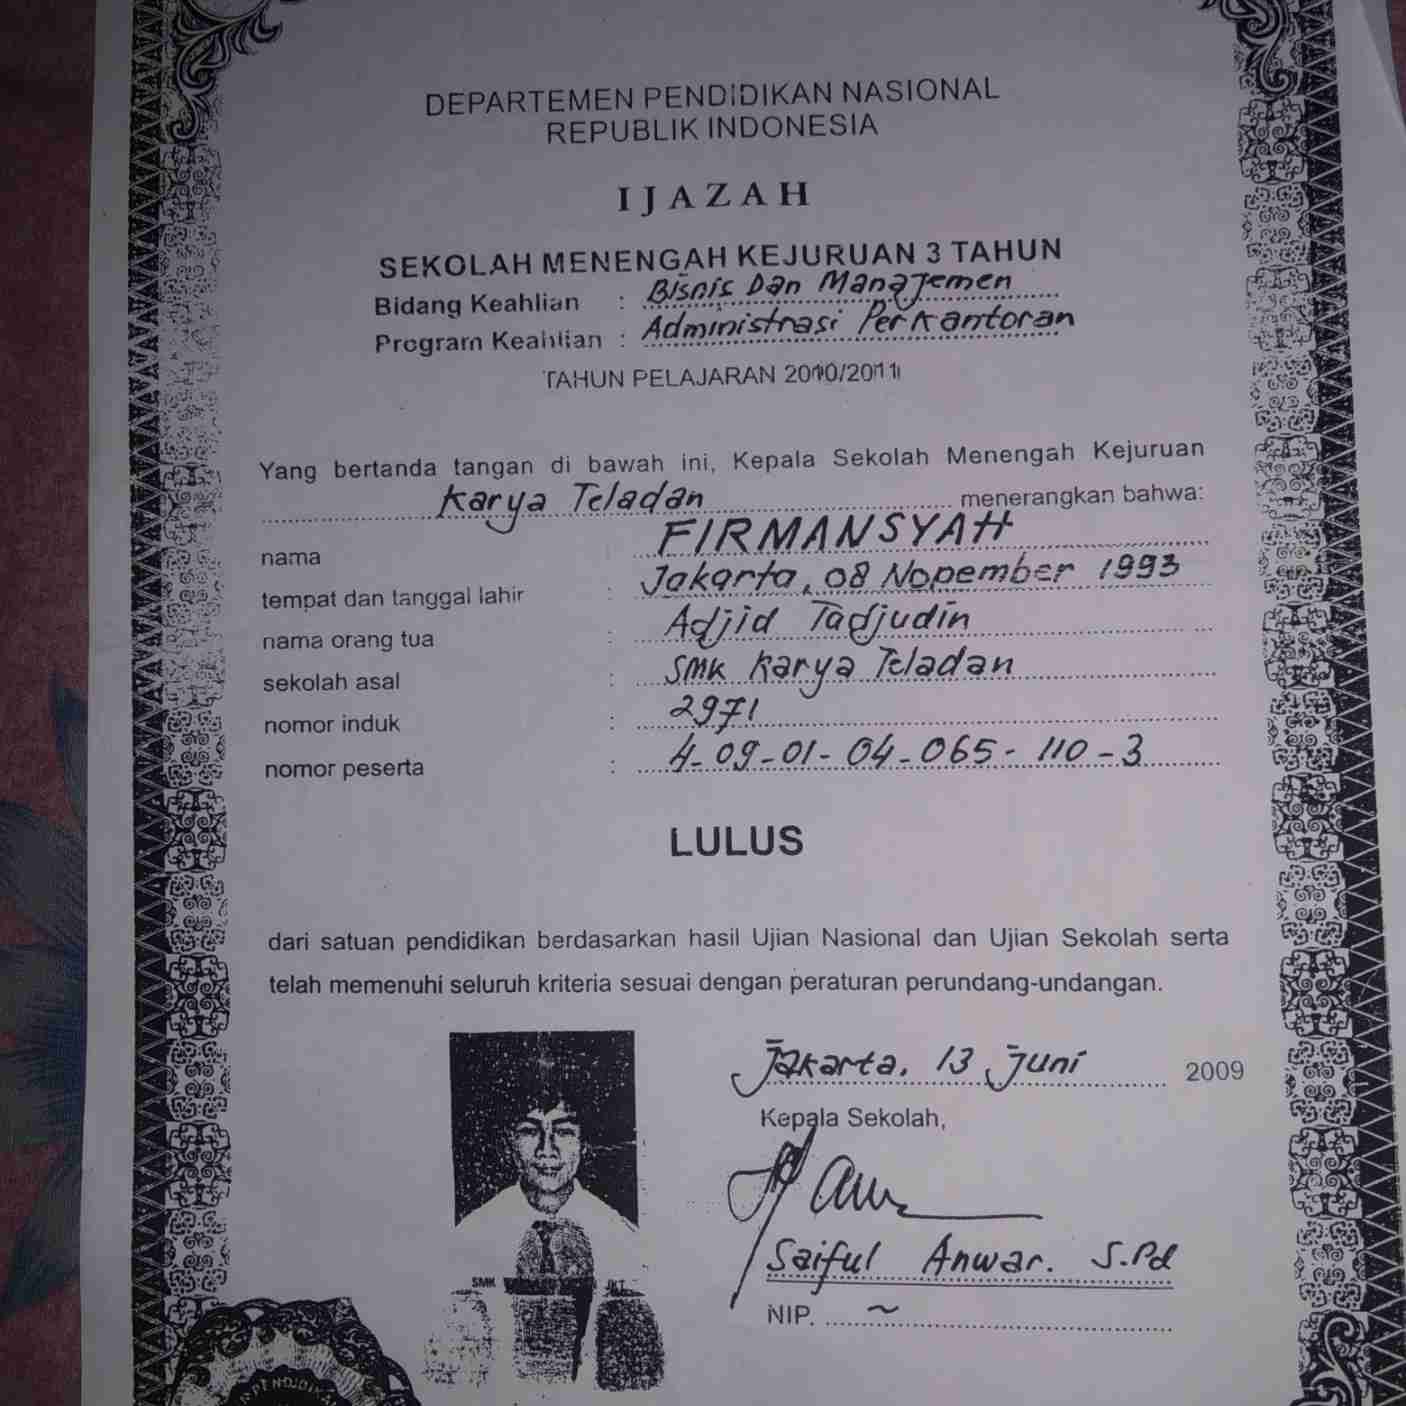 DEPARTEMEN PENDIDIKAN NASIONAL
REPUBLIK INDONESIA
IJAZAH
SEKOLAH MENENGAH KEJURUAN 3 TAHUN
Bidang Keahlian : Bisnis Dan Manajemen
Program Keahlian : Administrasi Perkantoran
TAHUN PELAJARAN 2010/2011
Yang bertanda tangan di bawah ini, Kepala Sekolah Menengah Kejuruan
Karya Teladan menerangkan bahwa:
nama FIRMANSYAH
tempat dan tanggal lahir : Jakarta, 08 Nopember 1993
nama orang tua : Adjid Tadjudin
sekolah asal : SMK Karya Teladan
nomor induk : 2971
nomor peserta : 4-09-01-04-065-110-3
LULUS
dari satuan pendidikan berdasarkan hasil Ujian Nasional dan Ujian Sekolah serta
telah memenuhi seluruh kriteria sesuai dengan peraturan perundang-undangan.
Jakarta, 13 Juni 2009
Kepala Sekolah,
Saiful Anwar. S.Pd
NIP. ~
SMK JKT